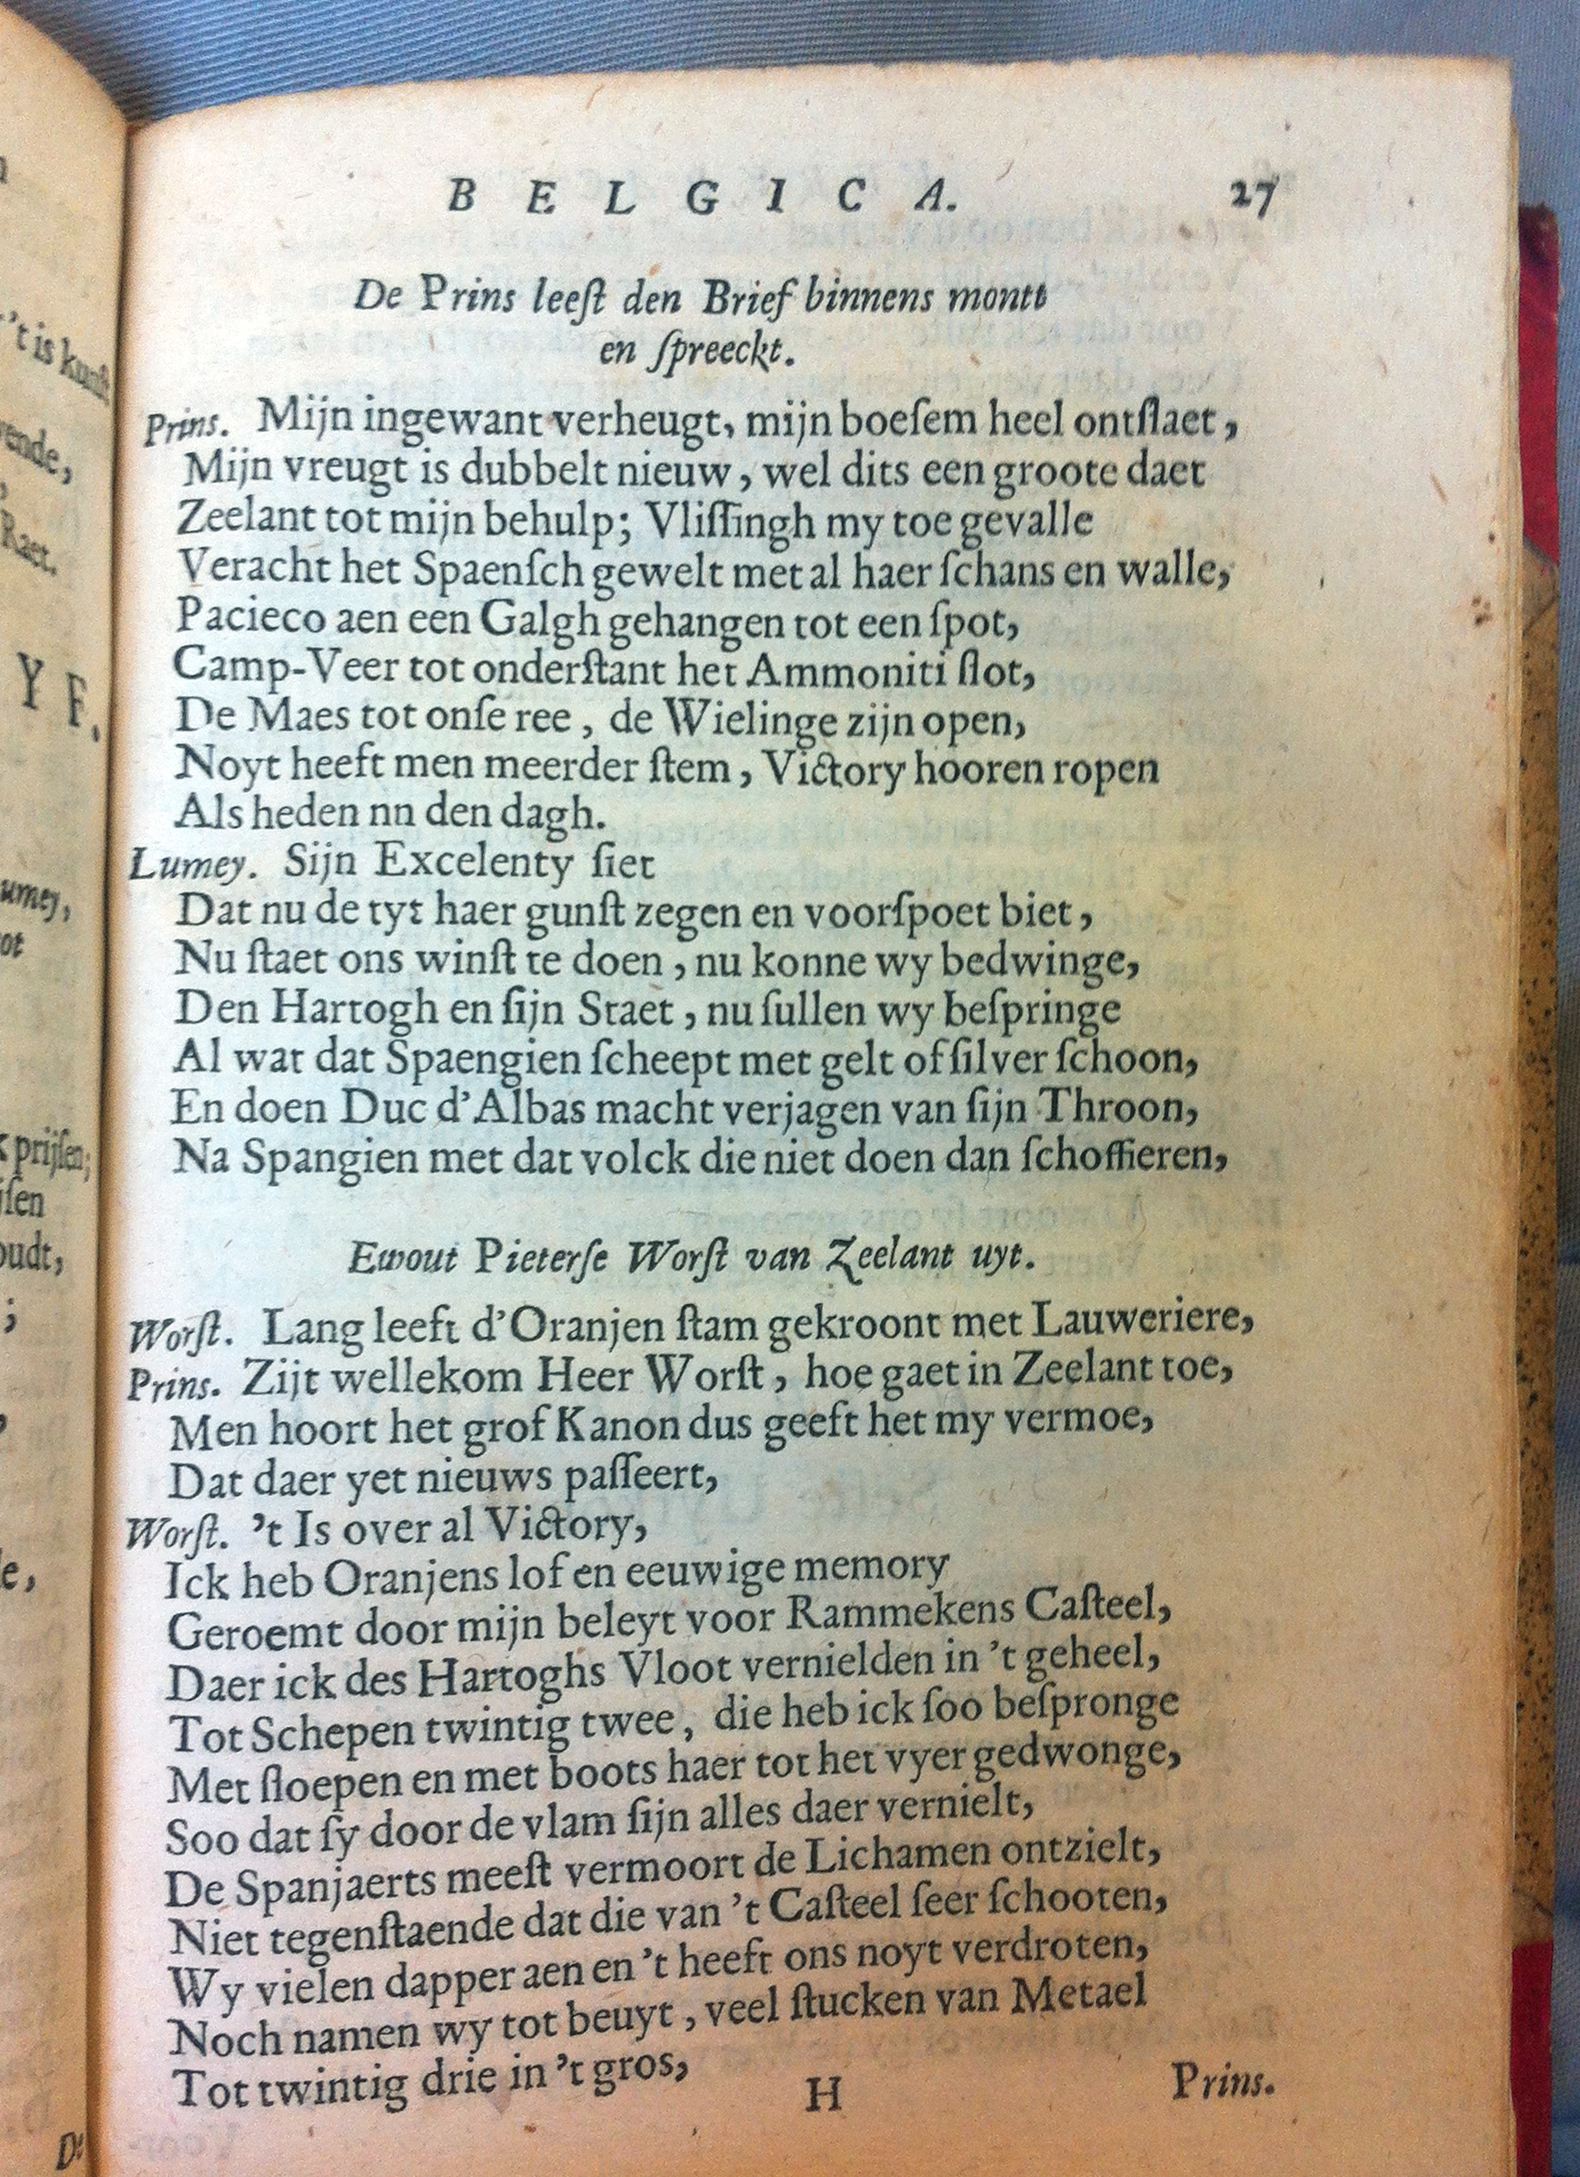 BELGICA. 27
De Prins leeſt den Brief binnens montt
en ſpreeckt.
Prins. Mijn ingewant verheugt, mijn boeſem heel ontſlaet,
Mijn vreugt is dubbelt nieuw, wel dits een groote daet
Zeelant tot mijn behulp; Vliſſingh my toe gevalle
Veracht het Spaenſch gewelt met al haer ſchans en walle,
Pacieco aen een Galgh gehangen tot een ſpot,
Camp-Veer tot onderſtant het Ammoniti ſlot,
De Maes tot onſe ree, de Wielinge zijn open,
Noyt heeft men meerder ſtem, Victory hooren ropen
Als heden nn den dagh.
Lumey. Sijn Excelenty ſiet
Dat nu de tyt haer gunſt zegen en voorſpoet biet,
Nu ſtaet ons winſt te doen, nu konne wy bedwinge,
Den Hartogh en ſijn Staet, nu ſullen wy beſpringe
Al wat dat Spaengien ſcheept met gelt of ſilver ſchoon,
En doen Duc d'Albas macht verjagen van ſijn Throon,
Na Spangien met dat volck die niet doen dan ſchoffieren,
Ewout Pieterſe Worſt van Zeelant uyt.
Worſt. Lang leeft d'Oranjen ſtam gekroont met Lauweriere,
Prins. Zijt wellekom Heer Worſt, hoe gaet in Zeelant toe,
Men hoort het grof Kanon dus geeft het my vermoe,
Dat daer yet nieuws paſſeert,
Worſt. 't Is over al Victory,
Ick heb Oranjens lof en eeuwige memory
Geroemt door mijn beleyt voor Rammekens Caſteel,
Daer ick des Hartoghs Vloot vernielden in 't geheel,
Tot Schepen twintig twee, die heb ick ſoo beſpronge
Met ſloepen en met boots haer tot het vyer gedwonge,
Soo dat ſy door de vlam ſijn alles daer vernielt,
De Spanjaerts meeſt vermoort de Lichamen ontzielt,
Niet tegenſtaende dat die van 't Caſteel ſeer ſchooten,
Wy vielen dapper aen en 't heeft ons noyt verdroten,
Noch namen wy tot beuyt, veel ſtucken van Metael
Tot twintig drie in 't gros,
H Prins.